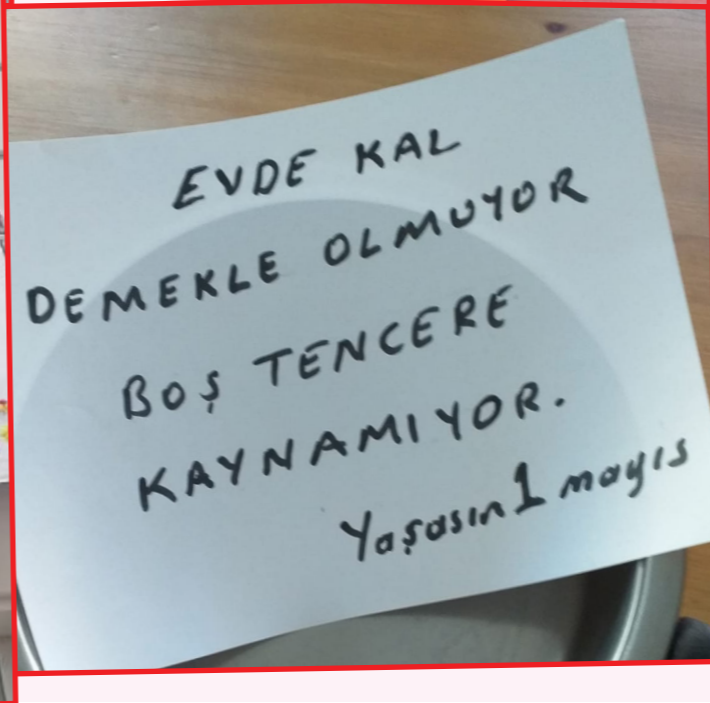 EVDE KAL
DEMEKLE OLMUYOR
BOŞ TENCERE
KAYNAMIYOR.
Yaşasın 1 mayıs